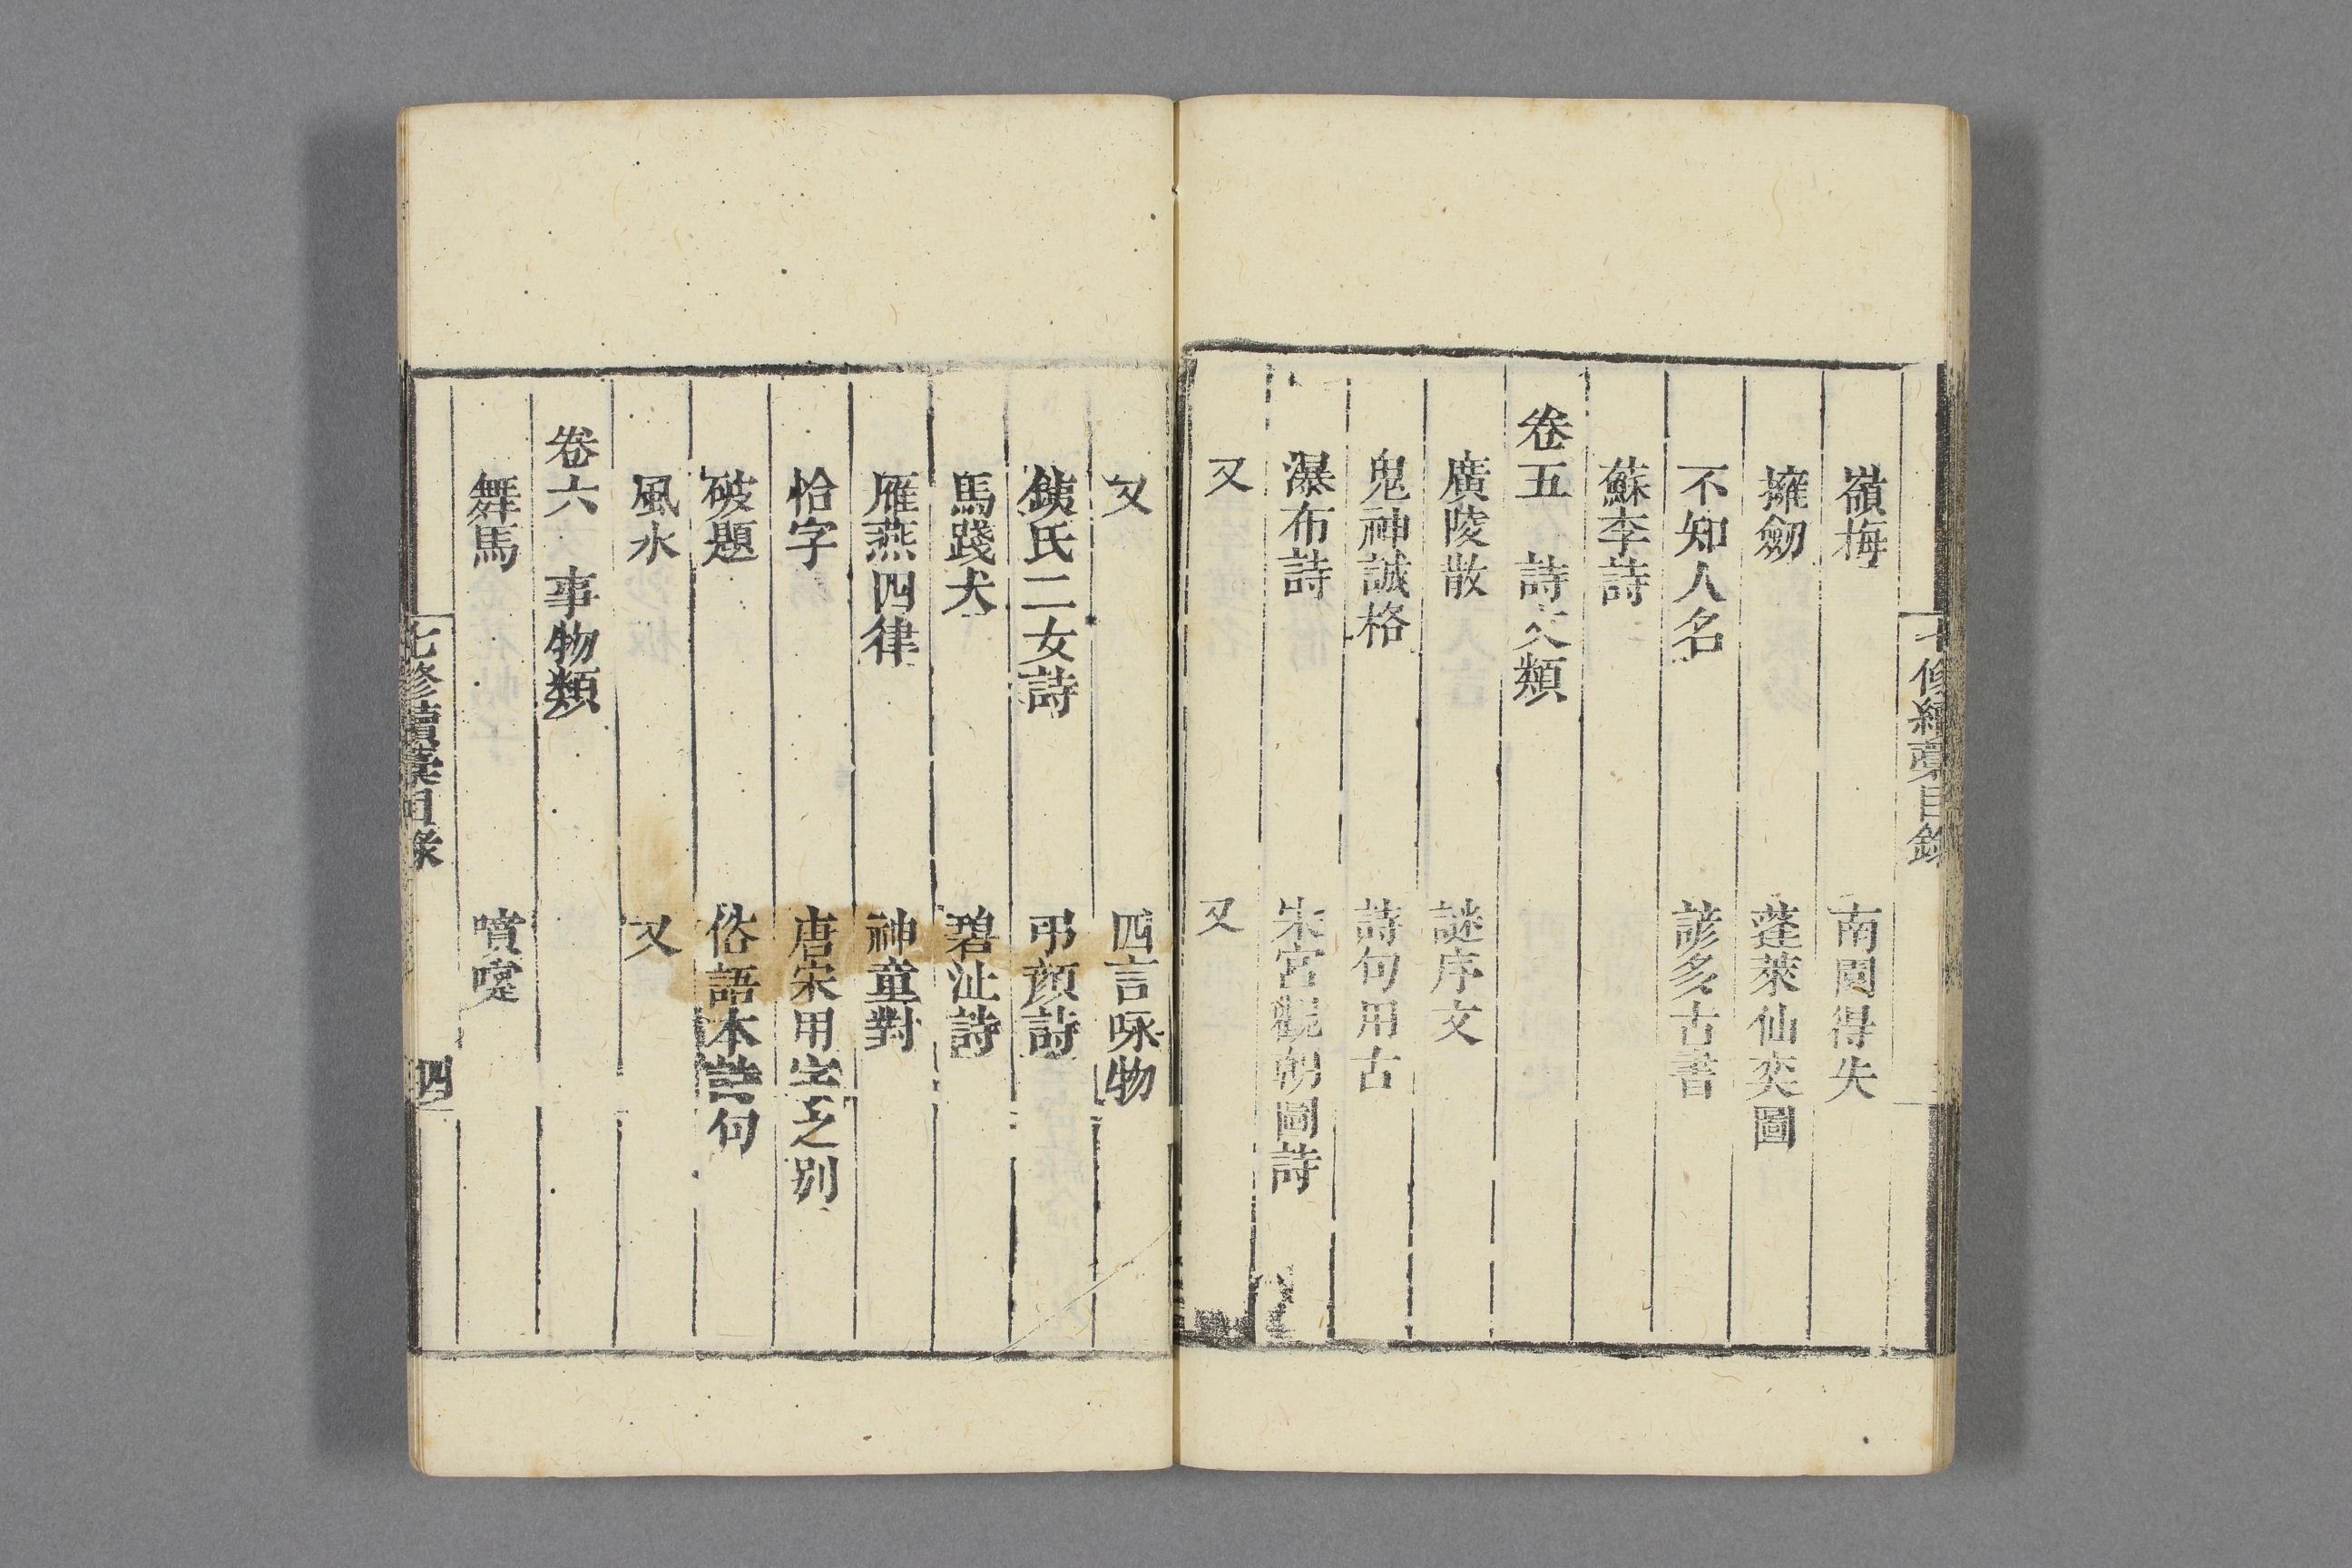 七修續藁目錄
嶺梅　南園得失
擁劒　蓬萊仙奕圖
不知人名　諺多古書
蘇李詩
卷五　詩文類
廣陵散　謎序文
鬼神誠格　詩句用古
瀑布詩　朱宮觀朝圖詩
又　又
又　四言咏物
鐵氏二女詩　弔顔詩
馬踐犬　碧沚詩
雁燕四律　神童對
恰字　唐宋用字之别
破題　俗語本詩句
風水　又
卷六　事物類
舞馬　噴嚏
七修續藁目錄　四